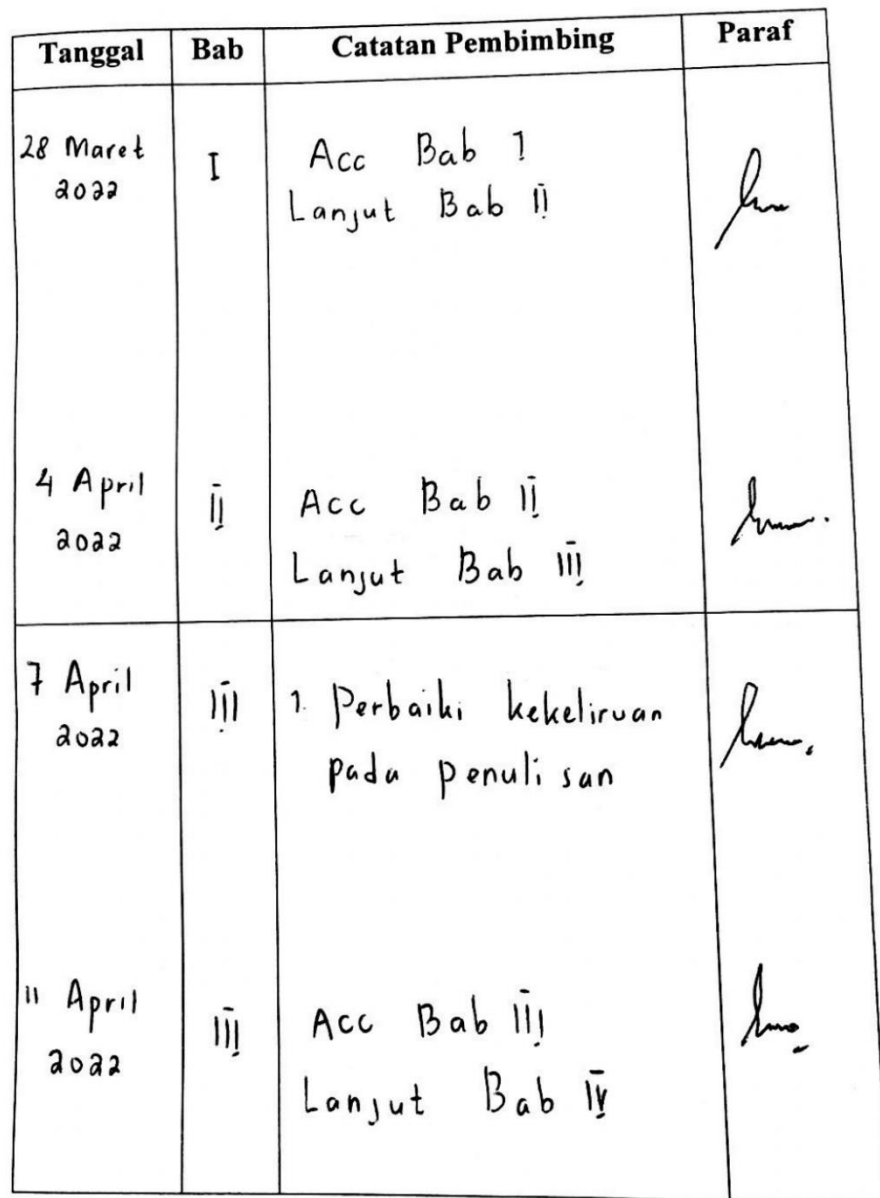 Tanggal Bab Catatan Pembimbing Paraf
28 Maret I Acc Bab I
2022 Lanjut Bab II
4 April II Acc Bab II
2022 Lanjut Bab III
7 April III 1. Perbaiki kekeliruan
2022 pada penulisan
11 April III Acc Bab III
2022 Lanjut Bab IV